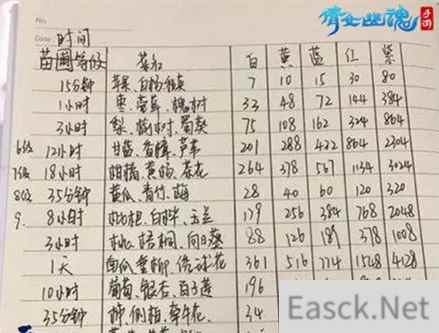 No.
倩女幽魂 手游
Date 时间
苗圃等级 苗名 白 黄 蓝 红 紫
15分钟 苹果、白杨、 7 10 15 30 80
1小时 枣、 33 48 72 144 384
3小时 梨、 树、蜀葵 75 108 162 324 864
6级 12小时 甘蓝、香樟、芦荟 201 288 432 864 2304
7级 18小时 柑橘、黄杨、茶花 264 378 567 1134 3024
8级 35分钟 黄瓜、青竹、 28 40 60 120 320
9. 8小时 枇杷、 、玉兰 179 256 384 768 2048
3小时 桃、梧桐、向日葵 88 126 189 378 1008
1天 南瓜、垂柳、绣球花 361 516 774 1548 4128
10小时 葡萄、银杏、百子莲 196
35分钟 柿、侧柏、牵牛花 34
Easck.Net